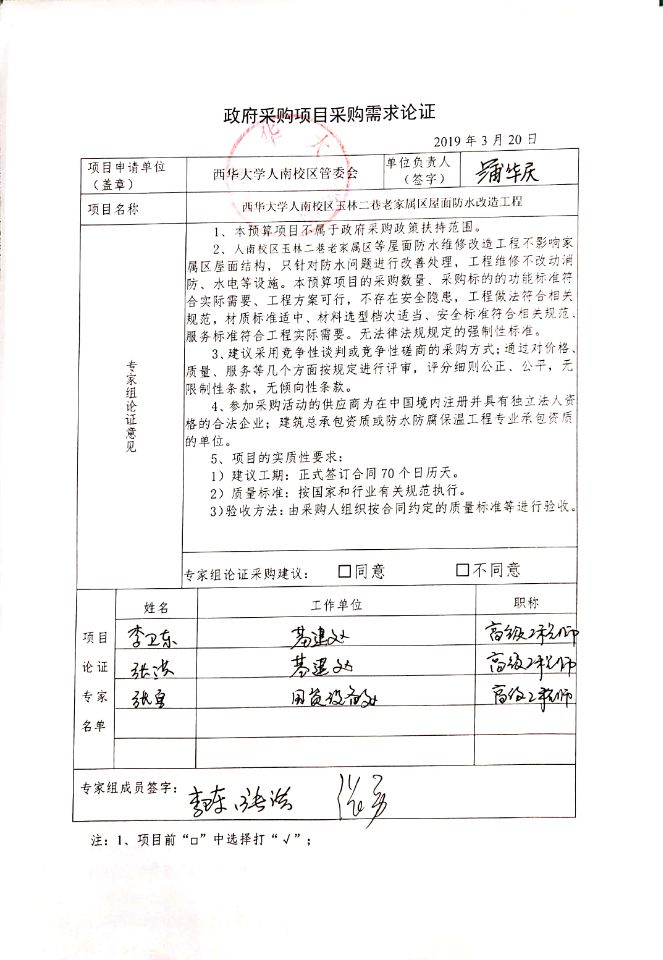 政府采购项目采购需求论证
2019 年 3 月 20 日
项目申请单位（盖章） 西华大学人南校区管委会 单位负责人（签字） 蒲华庆
项目名称 西华大学人南校区玉林二巷老家属区屋面防水改造工程
专家组论证意见
1、本预算项目不属于政府采购政策扶持范围。
2、人南校区玉林二巷老家属区等屋面防水维修改造工程不影响家
属区屋面结构，只针对防水问题进行改善处理，工程维修不改动消
防、水电等设施。本预算项目的采购数量、采购标的的功能标准符
合实际需要、工程方案可行，不存在安全隐患，工程做法符合相关
规范，材质标准适中、材料选型档次适当、安全标准符合相关规范、
服务标准符合工程实际需要。无法律法规规定的强制性标准。
3、建议采用竞争性谈判或竞争性磋商的采购方式；通过对价格、
质量、服务等几个方面按规定进行评审，评分细则公正、公平，无
限制性条款，无倾向性条款。
4、参加采购活动的供应商为在中国境内注册并具有独立法人资
格的合法企业；建筑总承包资质或防水防腐保温工程专业承包资质
的单位。
5、项目的实质性要求：
1）建议工期：正式签订合同 70 个日历天。
2）质量标准：按国家和行业有关规范执行。
3)验收方法：由采购人组织按合同约定的质量标准等进行验收。
专家组论证采购建议： □同意 □不同意
项目论证专家名单
姓名 工作单位 职称
李卫东 基建处 高级工程师
张洪 基建处 高级工程师
张勇 国资设备处 高级工程师
专家组成员签字： 李卫东 张洪 张勇
注：1、项目前“□”中选择打“√”；